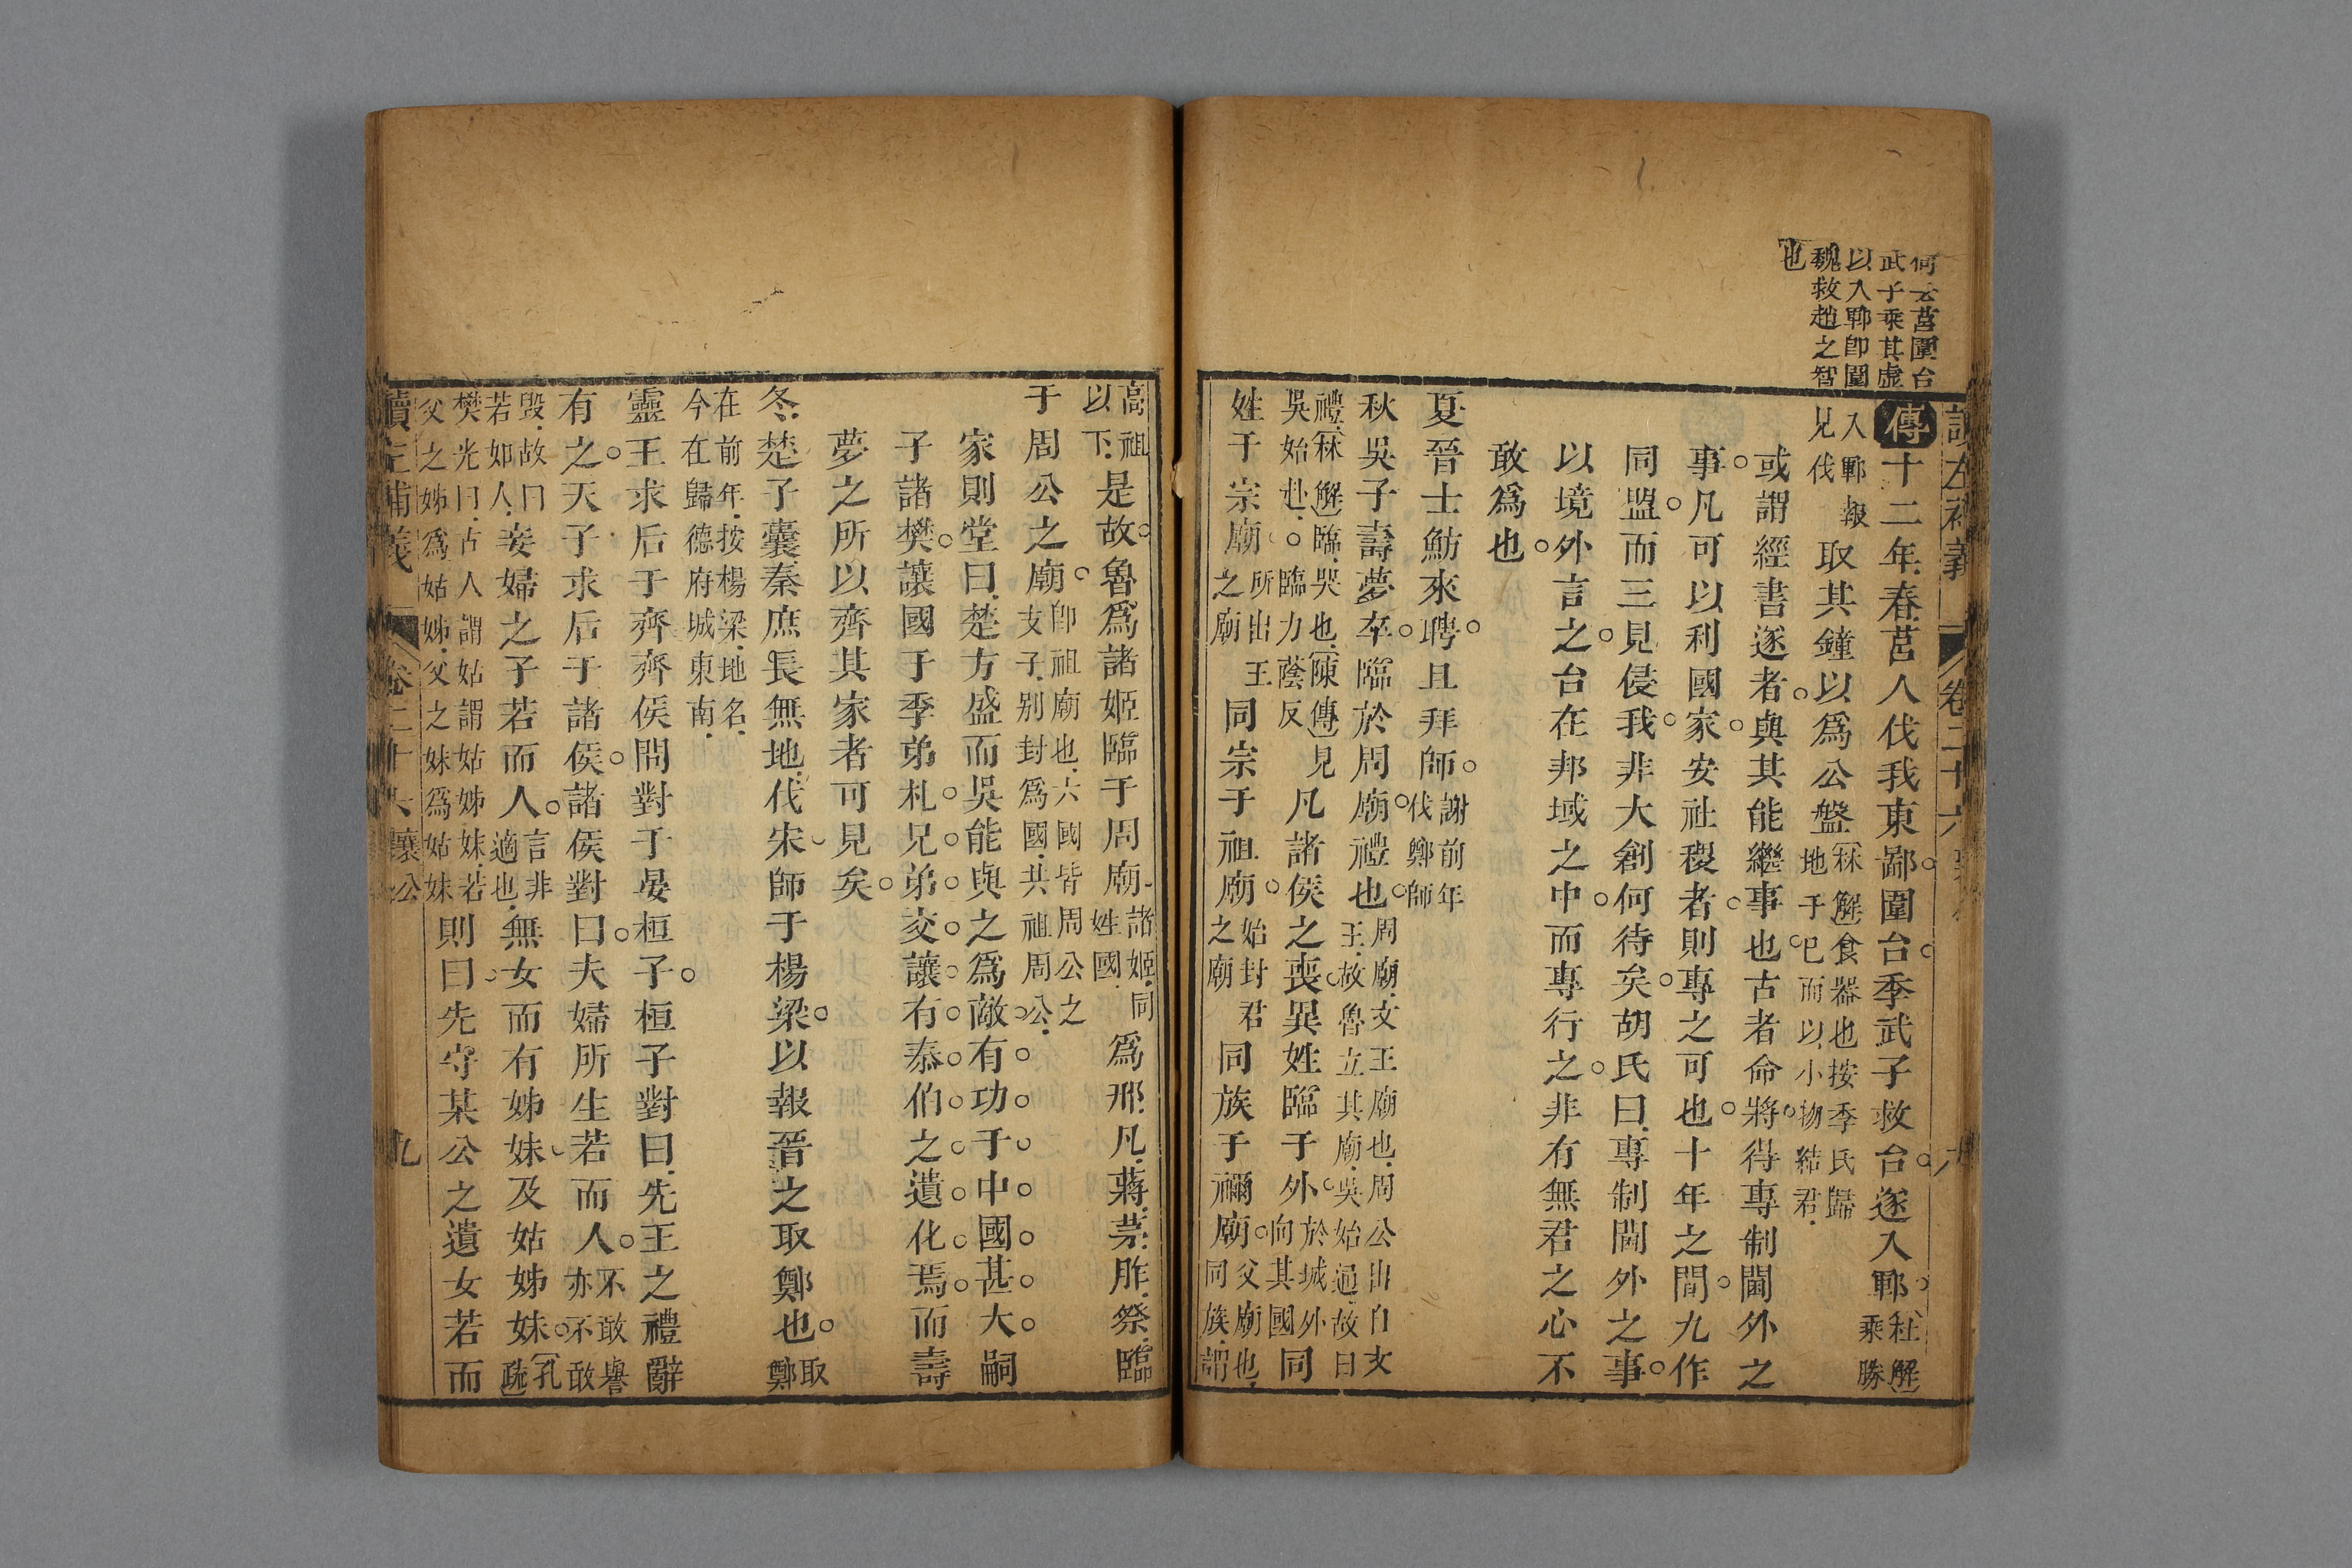 何云莒圍台
武子乘其虛
以入鄆即圍
魏救趙之智
也
讀左補義 卷二十六
傳十二年春莒人伐我東鄙圍台季武子救台遂入鄆杜解乘勝
入鄆報見伐取其鐘以爲公盤林解食器也按季氏歸地于巳而以小物結君
或謂經書遂者與其能繼事也古者命將得專制閫外之
事凡可以利國家安社稷者則專之可也十年之間九作
同盟而三見侵我非大創何待矣胡氏曰專制閫外之事
以境外言之台在邦域之中而專行之非有無君之心不
敢爲也
夏晉士魴來聘且拜師謝前年伐鄭師
秋吳子壽夢卒臨於周廟禮也周廟文王廟也周公出自文王故魯立其廟吳始通故曰
禮林解臨哭也陳傳見吳始赴○臨力蔭反凡諸侯之喪異姓臨于外於城外向其國同
姓于宗廟所出王之廟同宗于祖廟始封君之廟同族于禰廟父廟也同族謂
高祖以下是故魯爲諸姬臨于周廟諸姬同姓國爲邢凡蔣茅胙祭臨
于周公之廟卽祖廟也六國皆周公之支子別封爲國共祖周公
家則堂曰楚方盛而吳能與之爲敵有功于中國甚大嗣
子諸樊讓國于季弟札兄弟交讓有泰伯之遺化焉而壽
夢之所以齊其家者可見矣
冬楚子囊秦庶長無地伐宋師于楊梁以報晉之取鄭也取鄭
在前年按楊梁地名今在歸德府城東南
靈王求后于齊齊侯問對于晏桓子桓子對曰先王之禮辭
有之天子求后于諸侯諸侯對曰夫婦所生若而人不敢譽亦不敢
毀故曰若如人妾婦之子若而人言非適也無女而有姊妹及姑姊妹孔疏
樊光曰古人謂姑謂姑姊妹若父之姊爲姑姊父之妹爲姑妹則曰先守某公之遺女若而
讀左補義 卷二十六 襄公 九